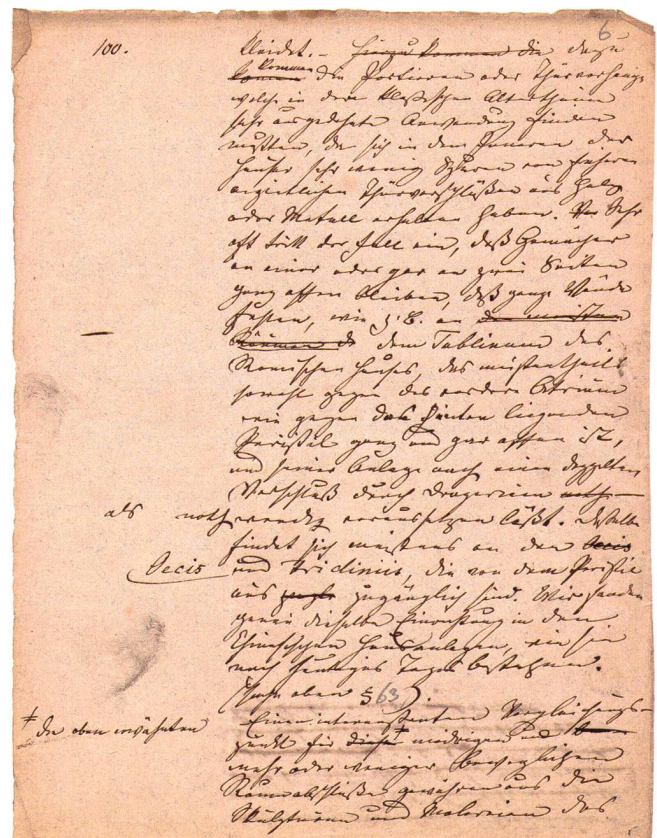 6
100.
kleidet. – Hierzu kommen die dazu
kommen die Portieren oder Thürvorhänge
welche in dem klassischen Alterthume
sehr ausgedehnte Anwendung finden
mußten, da sich in dem Inneren der
Häuser sehr wenig Spuren von
Thürverschlüßen aus Holz
oder Metall erhalten haben. Sehr
oft tritt der Fall ein, daß Gemächer
an einer oder gar an zwei Seiten
ganz offen bleiben, daß ganze Wände
fehlen, wie z. B. an den meisten
Räumen dem Tablinum des
Römischen Hauses, das meistentheils
sowohl gegen das vordere Atrium
wie gegen das hinten liegenden
Peristyl ganz und gar offen ist,
und seiner Anlage nach einen doppelten
Verschluß durch Draperieen noth-
als nothwendig voraussetzen läßt. Dasselbe
findet sich meistens an den Oecis
Oecis und Tricliniis, die von dem Peristil
aus zugänglich sind. Wir fanden
genau dieselbe Einrichtung in den
Chinesischen Hausanlagen, wie sie
noch heutiges Tages bestehen.
(siehe oben § 63).
Einen interessanten Vergleichungs-
‡ die oben erwähnten
punkt für diese ‡ niedrigen und
mehr oder weniger beweglichen
Raumabschlüße gewähren uns die
Skulpturen und Malereien des